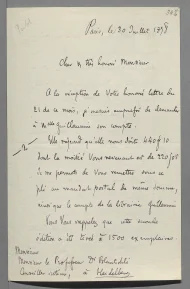 Paris, le 30 Juillet 1898
Cher & très honoré Monsieur
A la réception de Votre honorée lettre du
21 de ce mois, je m'suis empressé de demander
à Mr Guillaumin son compte.
Elle répond qu'elle nous doit 440f10
dont la moitié Vous revenant est de 220f05
Je me permets de Vous remettre sous ce
pli un mandat postal de même somme,
ainsi que le compte de la librairie Guillaumin
Vous Vous rappelez que cette seconde
édition a été tirée à 1500 exemplaires
Monsieur
Monsieur le Professeur Dr
Conseiller intime, à Heidelberg